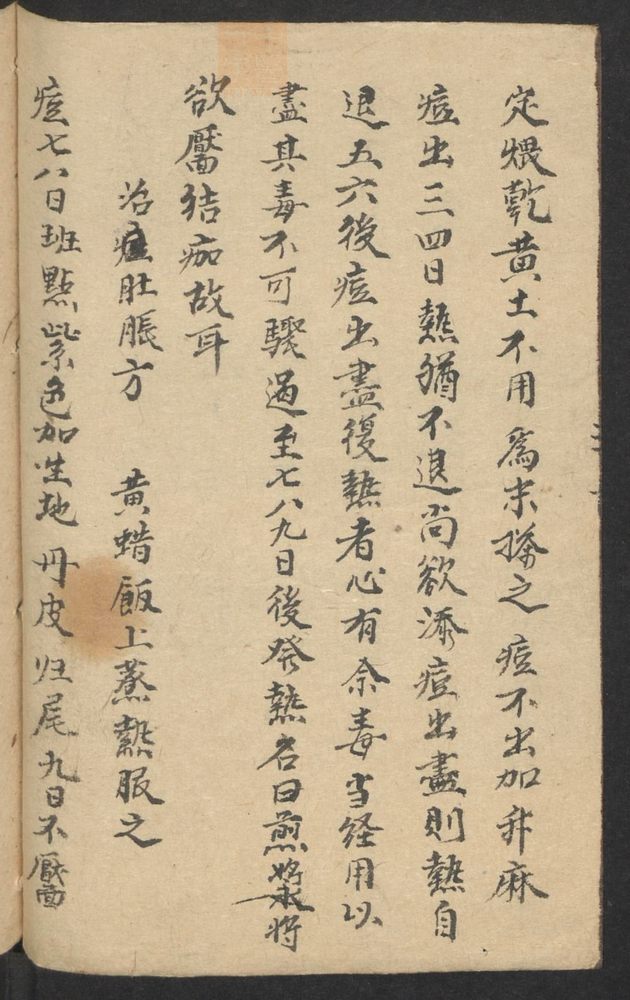 定煨乾黄土不用 為末搽之 痘不出加升麻
痘出三四日熱猶不退尚欲添痘出盡則熱自
退五六後痘出盡復熱者心有余毒当経用以
盡其毒不可驟過至七八九日後發熱名曰煎漿将
欲靨結痂故耳
治痘肚脹方 黄蜡飯上蒸熱服之
痘七八日班點紫色加生地 丹皮 归尾 九日不靨